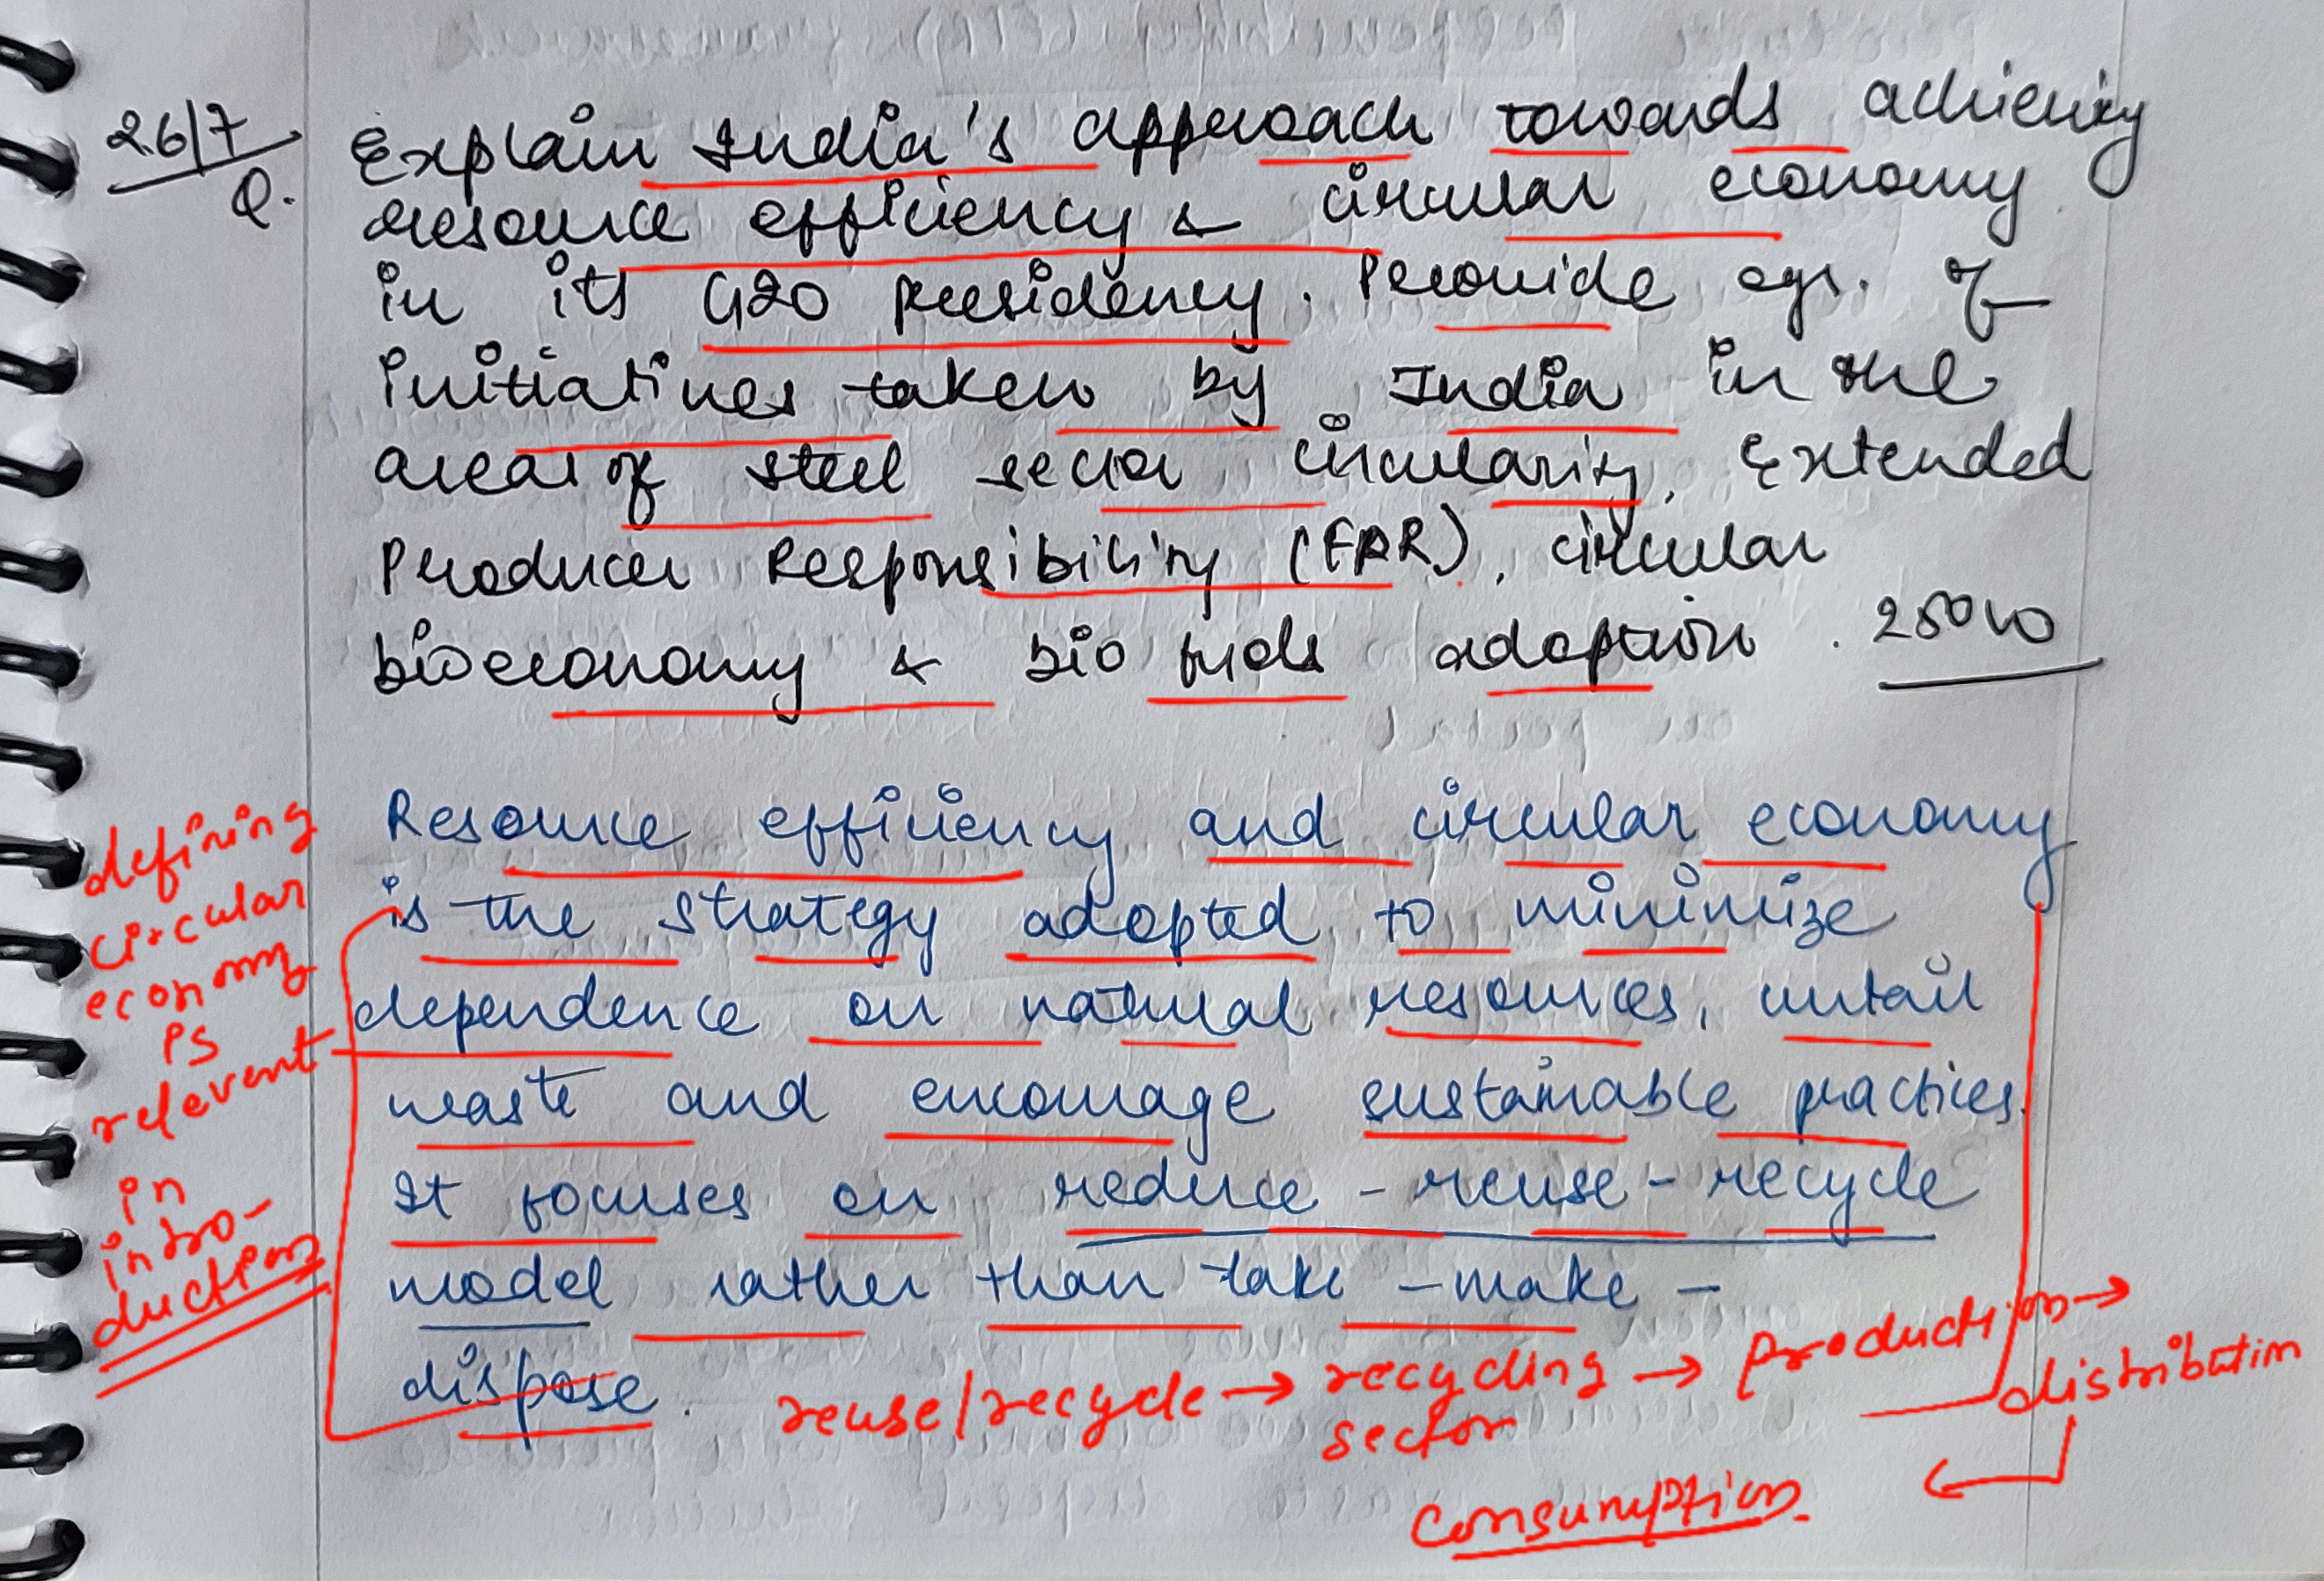 26/7
Q. Explain India's approach towards achieving
resource efficiency & circular economy
in its G20 presidency. Provide egs. of
initiatives taken by India in the
areas of steel sector circularity, Extended
Producer Responsibility (EPR), circular
bioeconomy & bio fuels adoption. 250w
Resource efficiency and circular economy
is the strategy adopted to minimize
dependence on natural resources, curtail
waste and encourage sustainable practices.
It focuses on reduce - reuse - recycle
model rather than take - make -
dispose.
defining
circular
economy
is
relevent
in
intro-
duction
reuse/recycle → recycling → production →
sector
distribution
consumption